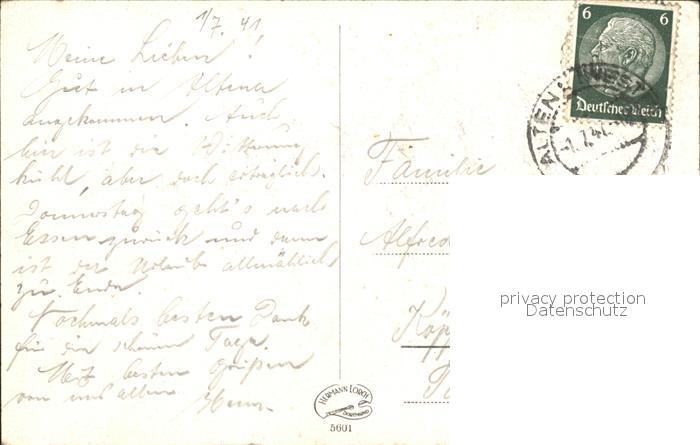 1/7. 41
Meine Lieben!
Gut in Altena
angekommen. Auch
hier ist die Witterung
kühl, aber doch erträglich.
Donnerstag geht's nach
Essen zurück und dann
ist der Urlaub allmählich
zu Ende.
Nochmals besten Dank
für die schönen Tage.
Mit besten Grüßen
von uns allen
6 6
Deutsches Reich
ALTENA (WESTF
1.7.41
Familie
Alfred
privacy protection
Datenschutz
HERMANN LORCH
DORTMUND
5601